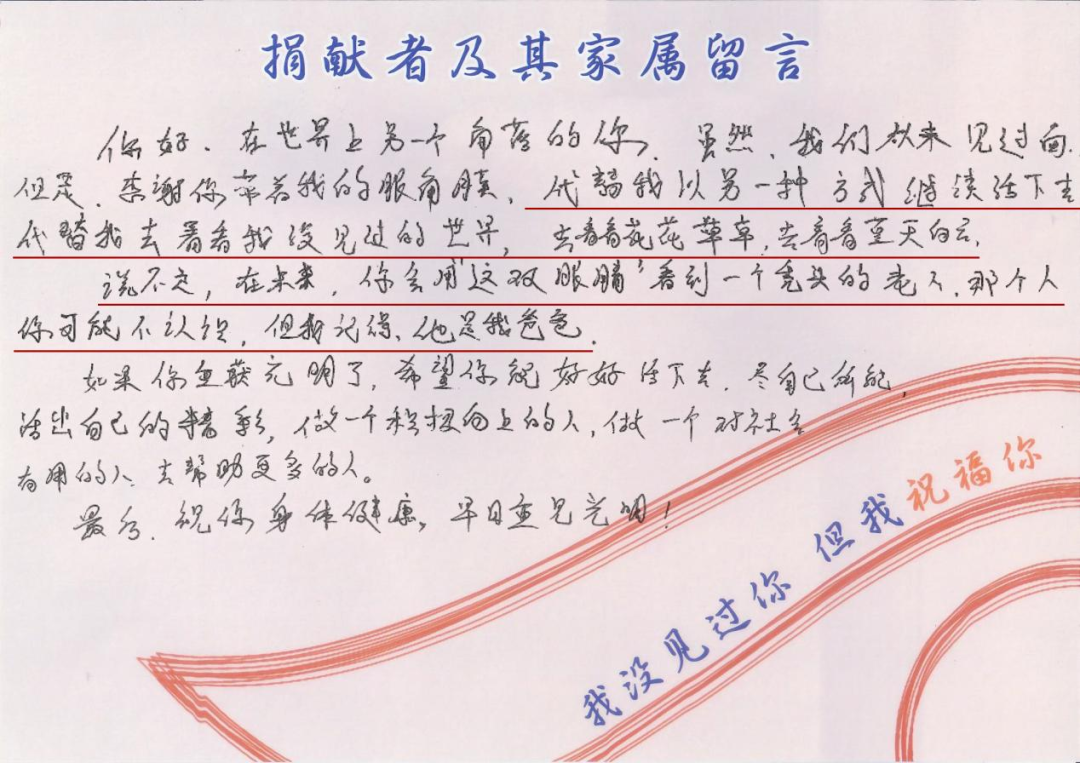 捐献者及其家属留言
你好．在世界上另一个角落的你．虽然．我们从来见过面．
但是．感谢你带着我的眼角膜．代替我以另一种方式继续活下去
代替我去看看我没见过的世界，去看看花花草草，去看看蓝天白云．
说不定，在未来，你会用“这双眼睛”看到一个秃头的老人．那个人
你可能不认识，但我记得、他是我爸爸．
如果你重获光明了，希望你能好好活下去．尽自己所能，
活出自己的精彩，做一个积极向上的人，做一个对社会
有用的人、去帮助更多的人。
最后．祝你身体健康，早日重见光明！
我没见过你 但我祝福你